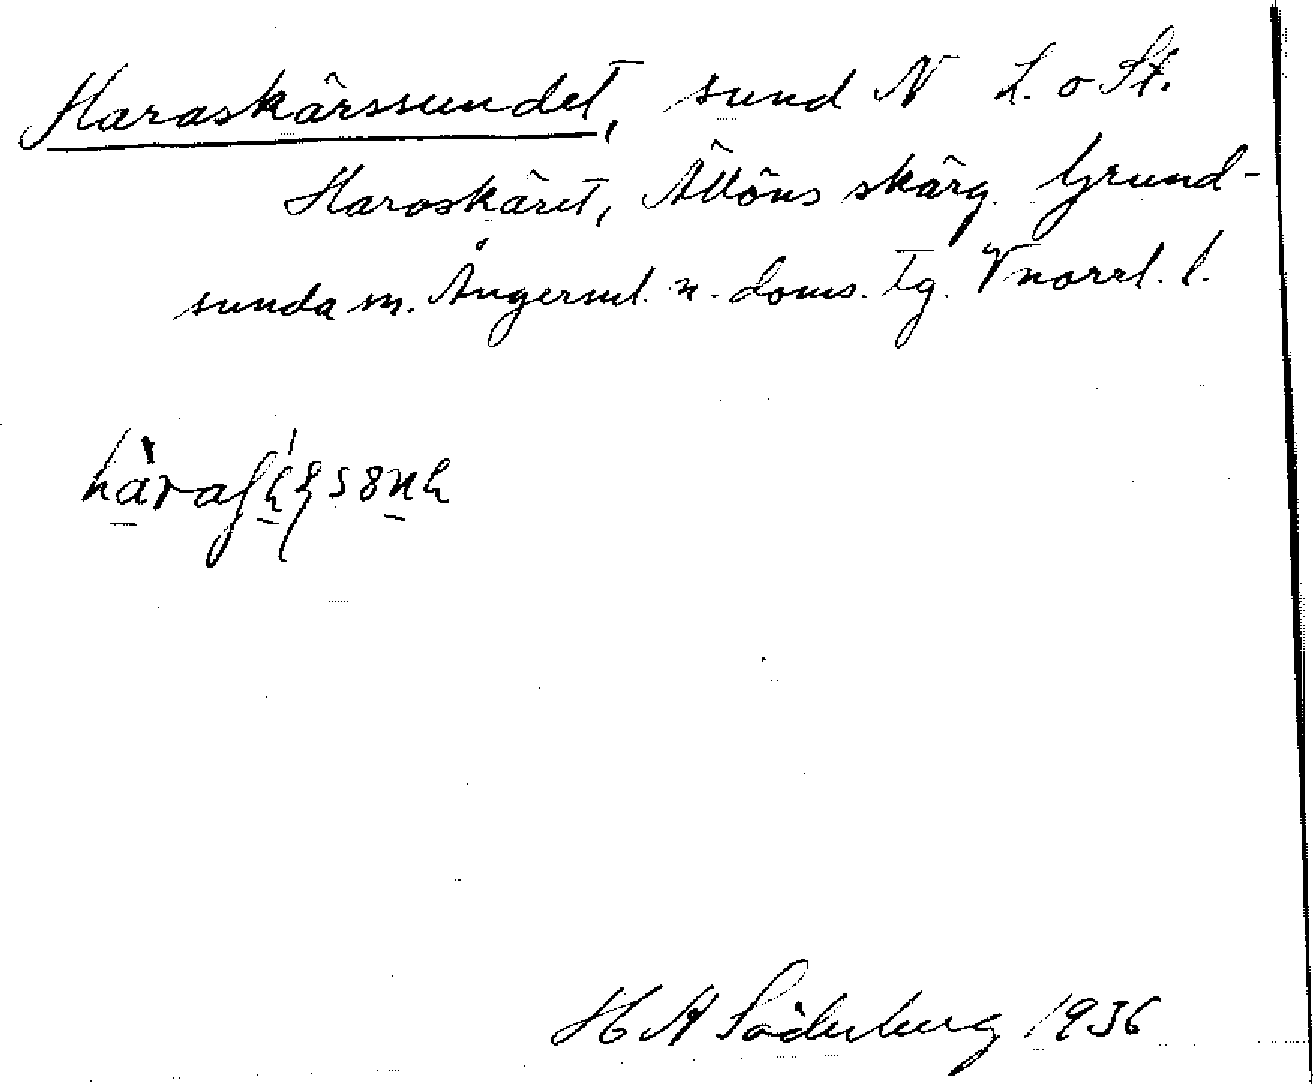 Haraskärssundet, sund N L. o St.
Haraskäret, Ällöns skärg. Grund-
sunda sn. Ångerml. n. doms. tg. Vnorrl. l.
H A Söderberg 1936